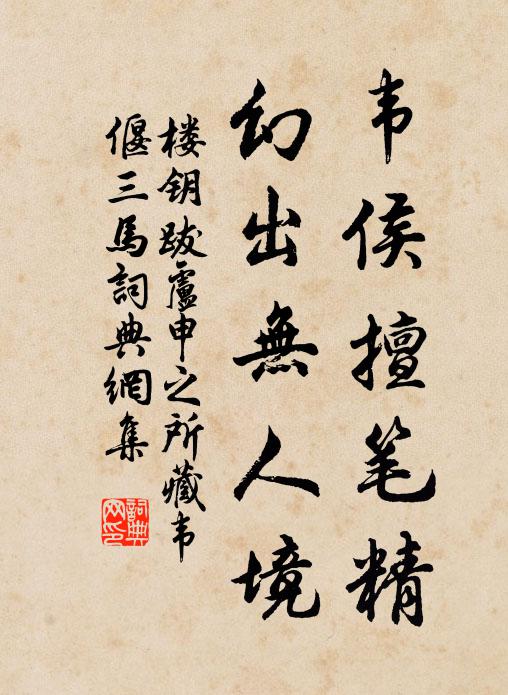 韦侯擅笔精
幻出無人境
楼钥跋盧申之所藏韦
偃三馬詞典網集
詞典
网印